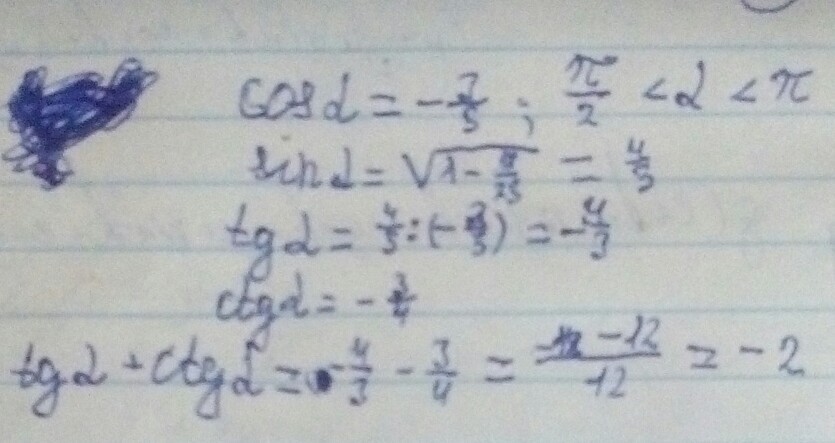 cos α = - 3/5 ; π/2 < α < π
sin α = √(1 - 9/25) = 4/5
tg α = 4/5 : (- 3/5) = - 4/3
ctg α = - 3/4
tg α + ctg α = - 4/3 - 3/4 = -12/12 = - 2